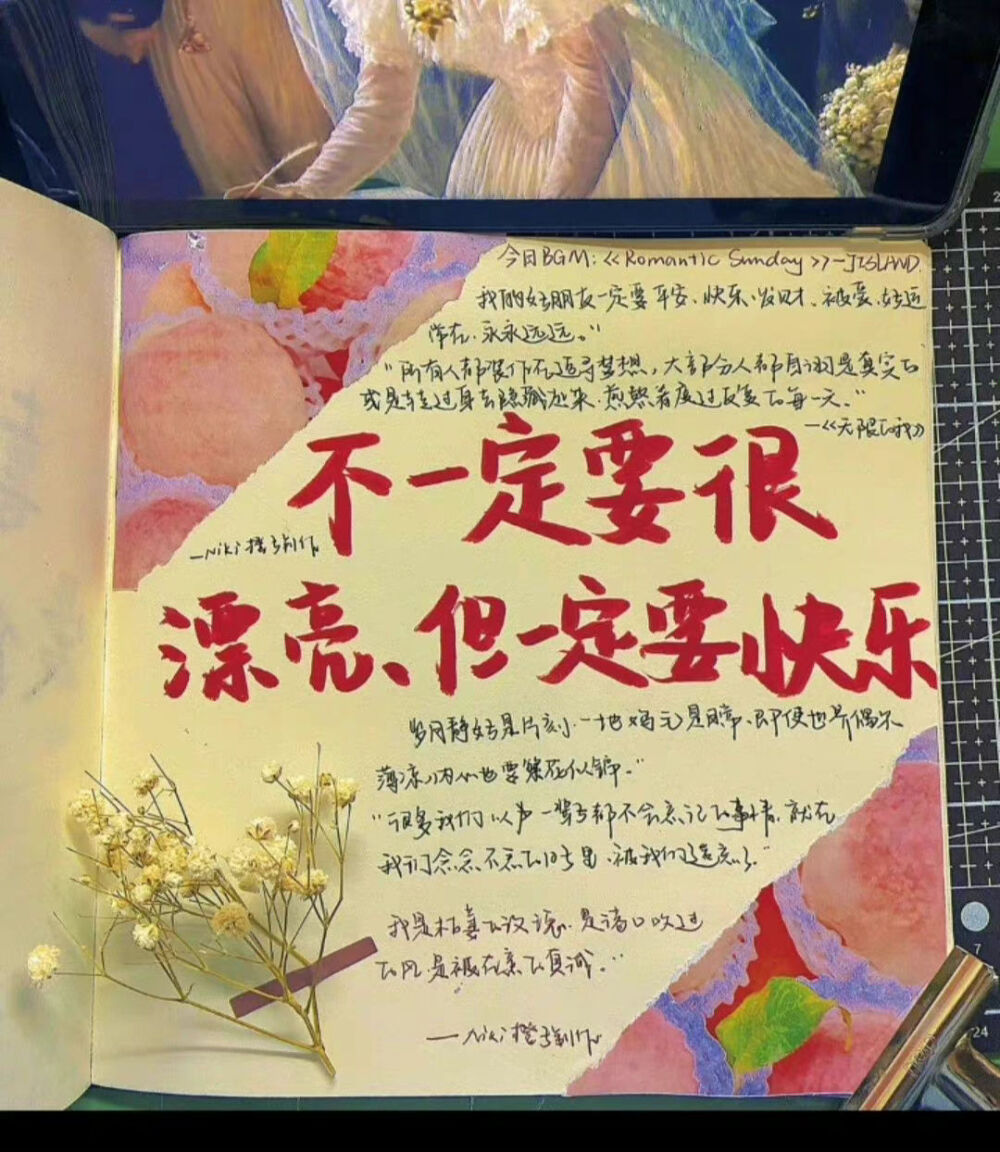 今日BGM:《Romantic Sunday》—J1SLAND
我的好朋友一定要平安、快乐、发财、被爱、好运
常在、永永远远。"
"所有人都装作在追寻梦想,大部分人都自诩是真实的
或是转过身去隐藏泪来,煎熬着度过反复的每一天。"
—《无限的我》
不一定要很
—Niki橙子制作
漂亮、但一定要快乐
岁月静好是片刻、一地鸡毛是日常、即便世界偶尔
薄凉,内心也要繁花似锦。"
"很多我们以为一辈子都不会忘记的事情,就在
我们念念不忘的日子里,被我们遗忘了"
我是 是
的风 是被 的真诚。"
—Niki橙子制作